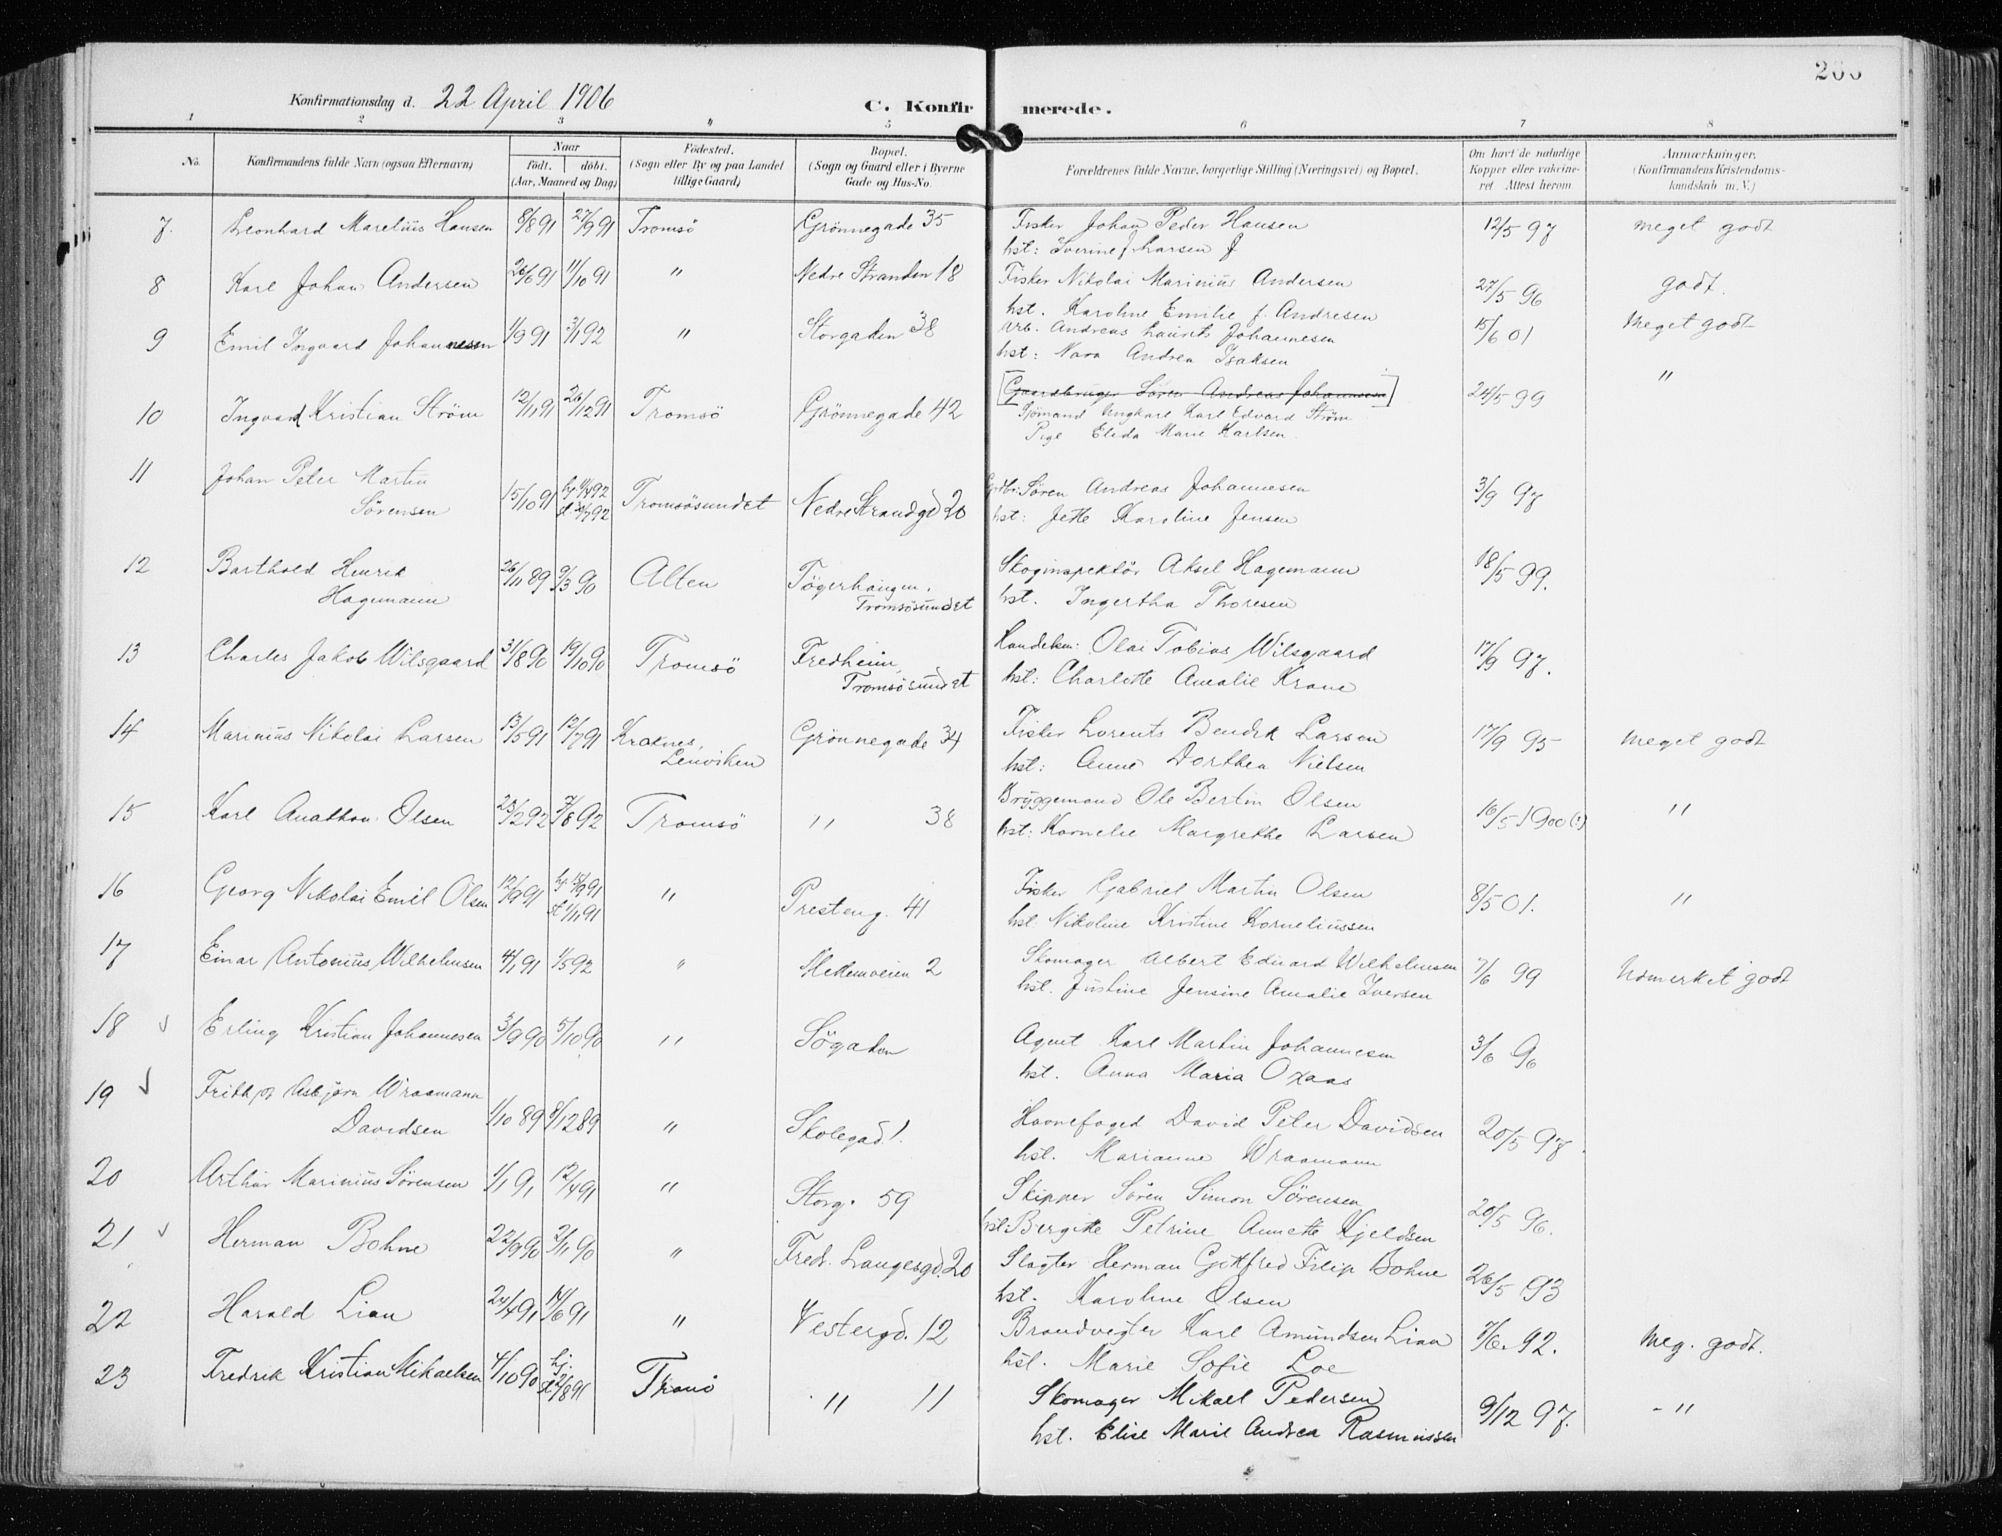 Konfirmationsdag d. 22 April 1906
C. Konfirmerede.
1 2 3 " 5 6 7 8
No. Konfirmandens fulde Navn (ogsaa Efternavn) Naar født. døbt. (Aar, Maaned og Dag) Fødested. (Sogn eller By og paa Landet tillige Gaard) Bopæl. (Sogn og Gaard eller i Byerne Gade og Hus-No. Forældrenes fulde Navne, borgerlige Stilling (Næringsvei) og Bopæl. Om havt de naturlige Kopper eller vakcineret. Attest herom Anmærkninger. (Konfirmandens Kristendomskundskab m. V.)
7. Leonhard Marelius Hansen 8/8 91 27/9 91 Tromsö Grönnegade 35 Fisker Johan Peder Hansen 12/5 97 meget godt
hst: Iverine f. Larsen
8 Karl Johan Andersen 26/6 91 11/10 91 " Nedre Stranden 18 Fisker Nikolai Marinius Andersen 27/5 96 godt.
hst. Karoline Emilie f. Andresen
9 Emil Ingvard Johannesen 1/9 91 3/1 92 " Storgaden 38 Arb. Andreas Laurits Johannesen 15/6 01 Meget godt
hst: Nora Andrea Isaksen
[Gaardbruger Sören Andreas Johannesen]
10 Ingvard Kristian Ström 12/11 91 26/12 91 Tromsö Grönnegade 42 Sjömand Ungkarl Karl Edvard Ström 24/5 99 "
Pige Elida Marie Karlsen.
11 Johan Peter Martin
Sörensen 15/10 91 Tromsösundet Nedre Strandgd 20 Grdbr. Sören Andreas Johannesen 3/9 97
hst: Jette Karoline Jensen
12 Barthold Henrik
Hagemann 26/11 89 9/3 90 Alten Tromsösundet Skoginspektör Aksel Hagemann 18/5 99.
hst. Ingertha Thoresen
13 Charles Jakob Wilsgaard 31/8 90 19/10 90 Tromsö Fredheim, Tromsösundet Handelsm: Olai Tobias Wilsgaard 17/9 97.
hst: Charlotte Amalie Krane
14 Marinius Nikolai Larsen 13/5 91 12/7 91 Kraknes, Lenviken Grönnegade 34 Fisker Lorents Bendik Larsen 17/9 95 meget godt
hst: Anne Dorthea Nielsen
15 Karl Anathon Olsen 23/2 92 7/8 92 Tromsö " 38 Bryggemand Ole Bertin Olsen 16/5 1900 (!) "
hst: Kornelie Margrethe Larsen
16 Georg Nikolai Emil Olsen 12/9 91 hj 15/9 91 st 1/11 91 " Presteng. 41 Fisker Gabriel Martin Olsen 8/5 01. "
hst. Nikoline Kristine Korneliussen
17 Einar Antonius Wilhelmsen 4/1 91 1/5 92 " 2 Skomager Albert Eduard Wilhelmsen 7/6 99 Udmerket godt
hst. Justine Jensine Amalie Iversen
18 Erling Kristian Johannesen 3/9 90 5/10 90 " Sögaden Agent Karl Martin Johannesen 3/6 96
hst. Anna Maria Oxaas
19 Asbjörn Wraamann
Davidsen 1/10 89 8/12 89 " Skolegad 1. Havnefoged David Peter Davidsen 20/5 97.
hst. Marianne Wraamann
20 Arthur Marinius Sörensen 1/1 91 12/4 91 " Storg. 59 Skipper Sören Simon Sörensen 20/5 96.
hst: Bergitte Petrine Annette Kjeldsen
21 Herman Bohne 22/9 90 2/11 90 " Fredr. Langesgd. 20 Slagter Herman Gotfred Filip Bohne 26/5 93
hst. Karoline Olsen
22 Harald Lian 24/4 91 14/6 91 " Vestergd. 12 Brandvegter Karl Amundsen Lian 7/6. 92. Meg. godt.
hst. Marie Sofie Loe
23 Fredrik Kristian Mikaelsen 4/10 90 Tranö " 11 Skomager Mikael Pedersen 9/12 97. - "
hst. Elise Marie Andrea Rasmussen